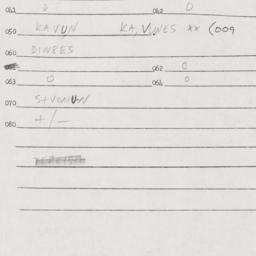 061 0 062 0
050 KAVUN KA,VUNES ** (009
060 DINBES
062 0
063 0 064 0
070 STVONUN
080 +/-